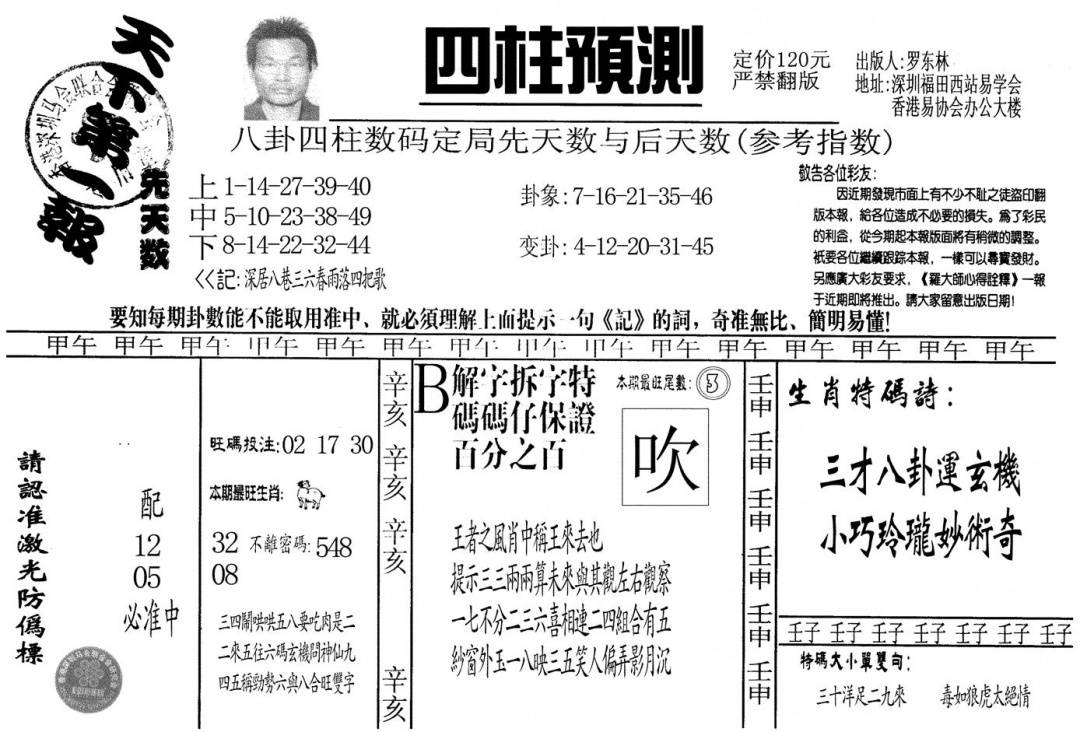 天下第一報
四柱預測
定价120元
严禁翻版
出版人:罗东林
地址:深圳福田西站易学会
香港易协会办公大楼
八卦四柱数码定局先天数与后天数(参考指数)
先天数
上1-14-27-39-40
中5-10-23-38-49
下8-14-22-32-44
卦象:7-16-21-35-46
变卦:4-12-20-31-45
<<記:深居八巷三六春雨落四把歌
敬告各位彩友:
因近期發現市面上有不少不耻之徒盜印翻
版本報,給各位造成不必要的損失。爲了彩民
的利益,從今期起本報版面將有稍微的調整。
衹要各位繼續跟踪本報,一樣可以尋寶發財。
另應廣大彩友要求,《羅大師心得詮釋》一報
于近期即將推出。請大家留意出版日期!
要知每期卦數能不能取用准中、就必須理解上面提示一句《記》的詞,奇准無比、簡明易懂!
甲午 甲午 甲午 甲午 甲午 甲午 甲午 甲午 甲午 甲午 甲午 甲午 甲午 甲午 甲午
請認准激光防僞標
配
12
05
必准中
旺碼投注:02 17 30
本期最旺生肖:
32 不離密碼:548
08
三四鬧哄哄五八要吃肉是二
二來五往六碼玄機問神仙九
四五稱勁勢六與八合旺雙字
辛亥 辛亥 辛亥 辛亥
B解字拆字特
碼碼仔保證
百分之百
本期最旺尾數:3
吹
王者之風肖中稱王來去也
提示三三兩兩算未來與其觀左右觀察
一七不分二三六喜相連二四組合有五
紗窗外玉一八映三五笑人偏弄影月沉
壬申 壬申 壬申 壬申 壬申 壬申
生肖特碼詩:
三才八卦運玄機
小巧玲瓏妙術奇
壬子 壬子 壬子 壬子 壬子 壬子 壬子
特碼大小單雙句:
三十洋足二九來 毒如狼虎太絕情